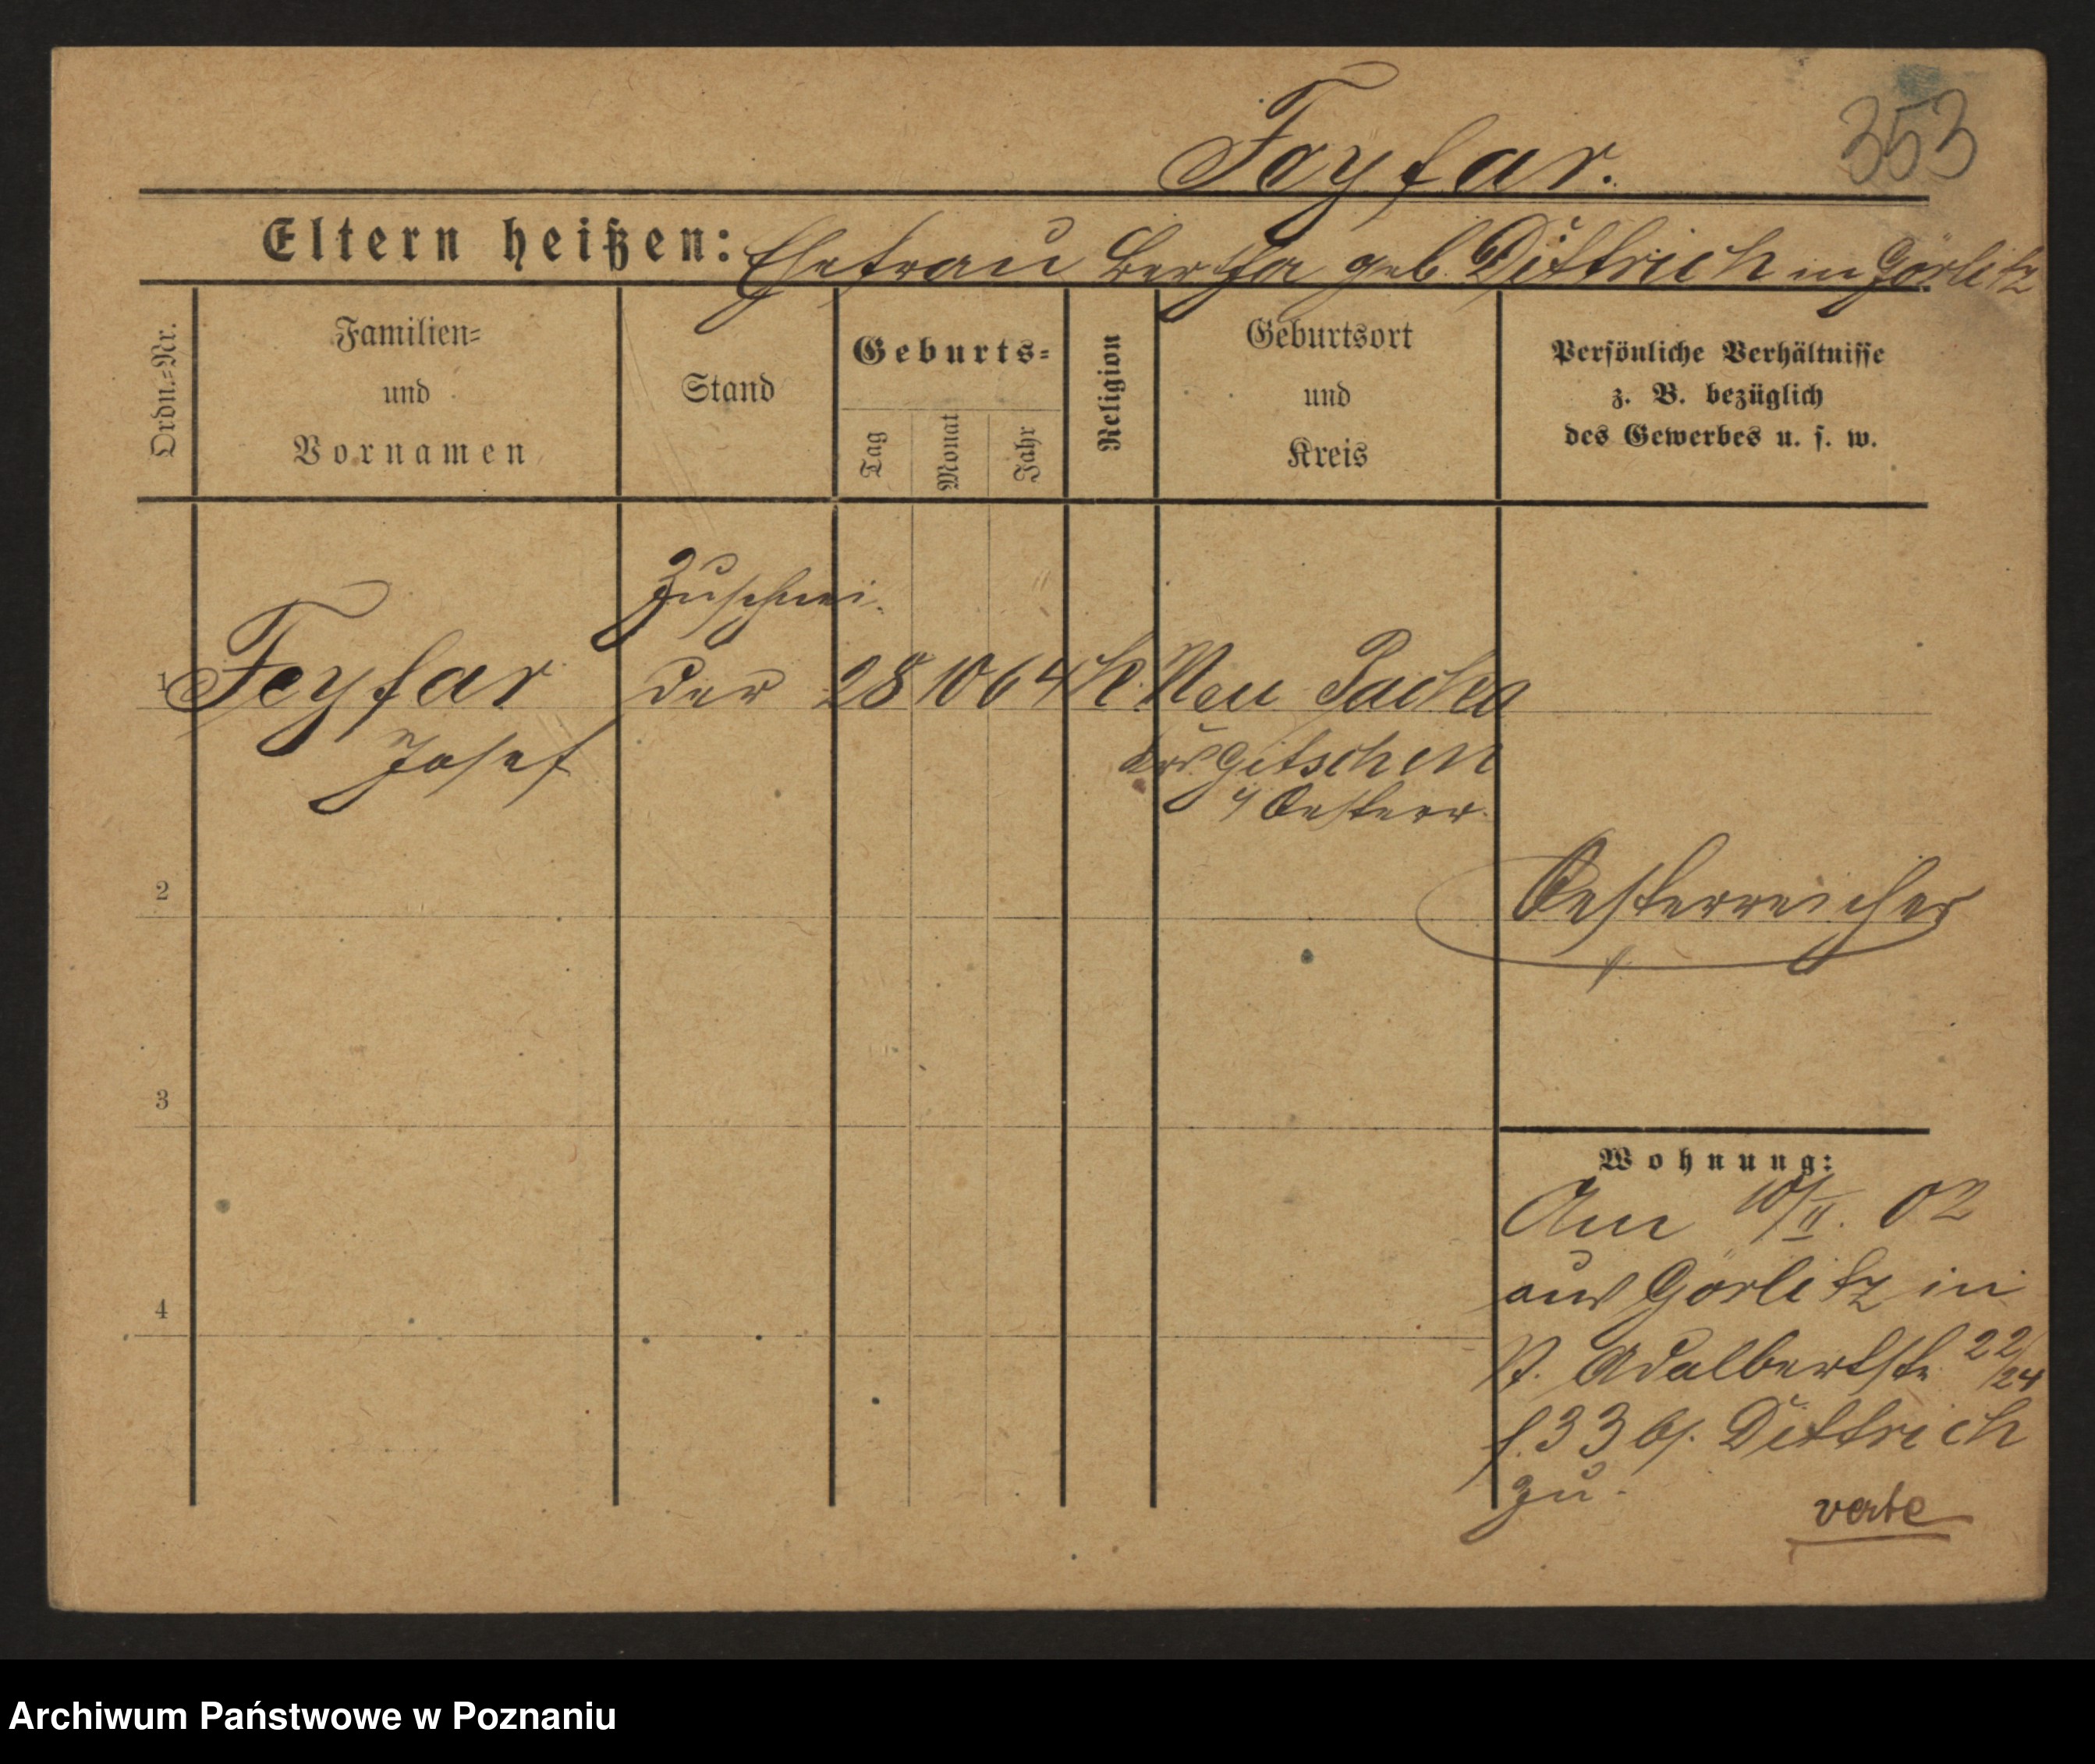 Feyfar.
353
Eltern heißen: Ehefrau Bertha geb. Dittrich in Görlitz
Ordn.=Nr.
Familien=
und
Vornamen
Stand
Geburts=
Tag
Monat
Jahr
Religion
Geburtsort
und
Kreis
Persönliche Verhältnisse
z. B. bezüglich
des Gewerbes u. s. w.
Zuschnei.
1 Feyfar der 28 10 64 k. Neu Packa
Josef Krs. Gitschin
Oesterr.
2
Oesterreicher
3
Wohnung:
Am 10/II. 02
aus Görlitz in
4
P. Adalbertstr. 22/24
f. 33 b/. Dittrich
zu.
verte
Archiwum Państwowe w Poznaniu